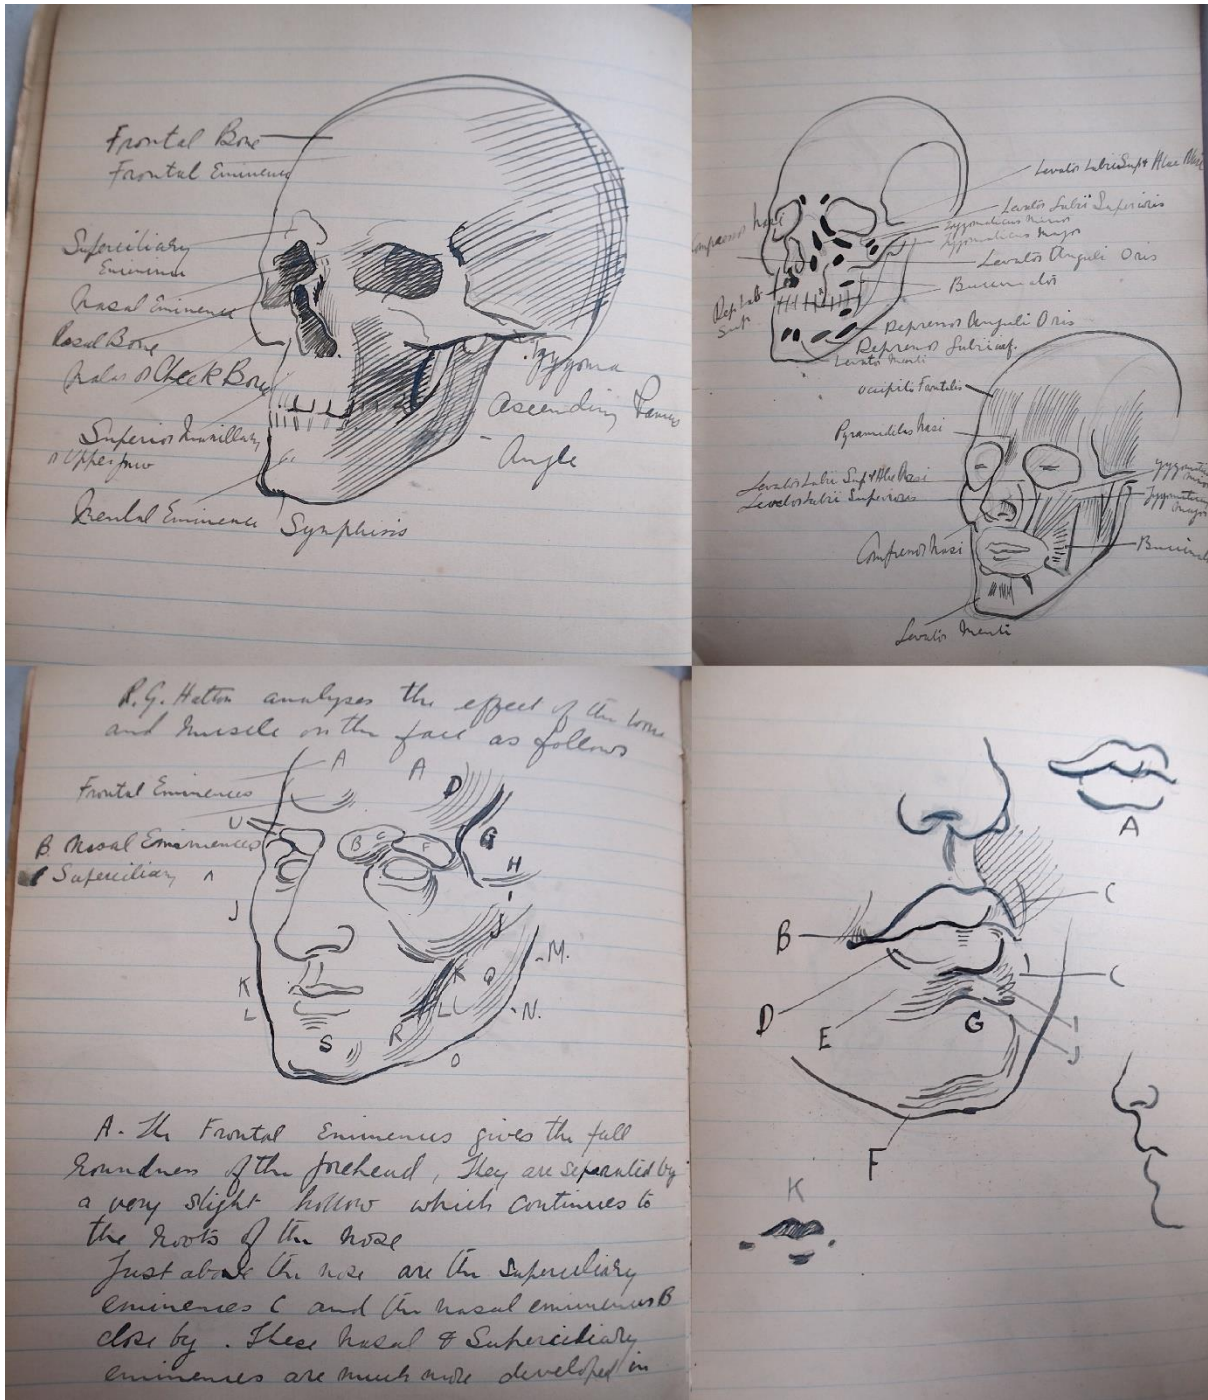 Frontal Bone
Frontal Eminence
Superciliary
Eminence
Nasal Eminence
Nasal Bone
Malar or Cheek Bone
Superior Maxillary
or Upper Jaw
Mental Eminence
Symphisis
Zygoma
Ascending Ramus
Angle
Levator Labii Sup & Alae Nasi
Levator Labii Superioris
Zygomaticus Minor
Zygomaticus Major
Levator Anguli Oris
Buccinator
Compressor Nasi
Dep Lab
Sup
Depressor Anguli Oris
Depressor Labii inf.
Levator Menti
Occipito Frontalis
Pyramidalis Nasi
Levator Labii Sup & Alae Nasi
Levator Labii Superioris
Compressor Nasi
Levator Menti
R.G. Hatton analyses the effect of the bone
and Muscle on the face as follows
Frontal Eminences
B. Nasal Eminences
Superciliary
A
A
D
U
B
C
F
G
H
J
J
K
L
K
L
Q
M.
N.
O
R
S
A. The Frontal Eminences gives the full
Roundness of the forehead, They are separated by
a very slight hollow which continues to
the Roots of the nose
Just above the nose are the Superciliary
eminences C and the nasal eminences B
close by. These Nasal & Superciliary
eminences are much more developed in
A
B
C
C
D
E
G
I
J
F
K